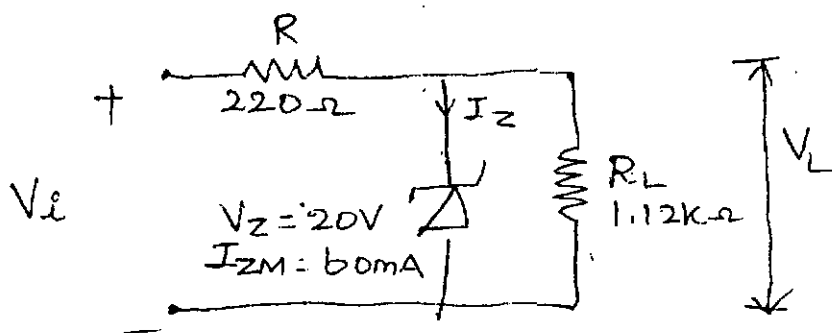 R
220Ω
+
I_Z
V_i
V_Z = 20V
I_ZM = 60mA
R_L
1.12KΩ
V_L
−